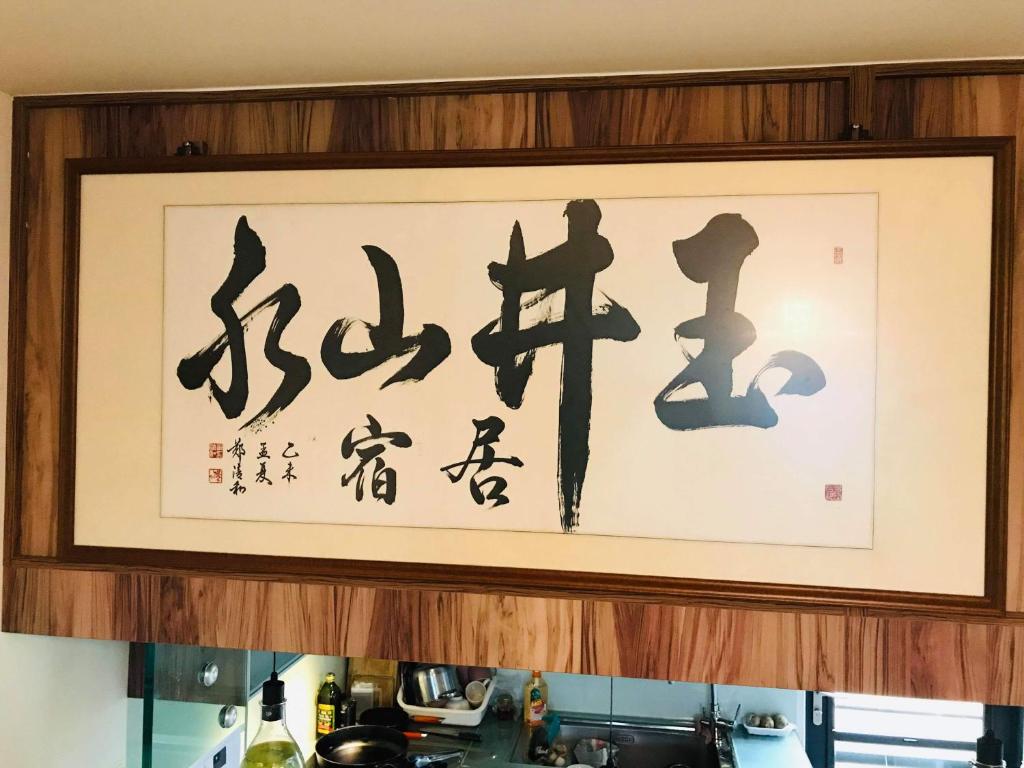 玉井山水
居宿
乙未
孟夏
鄭清和